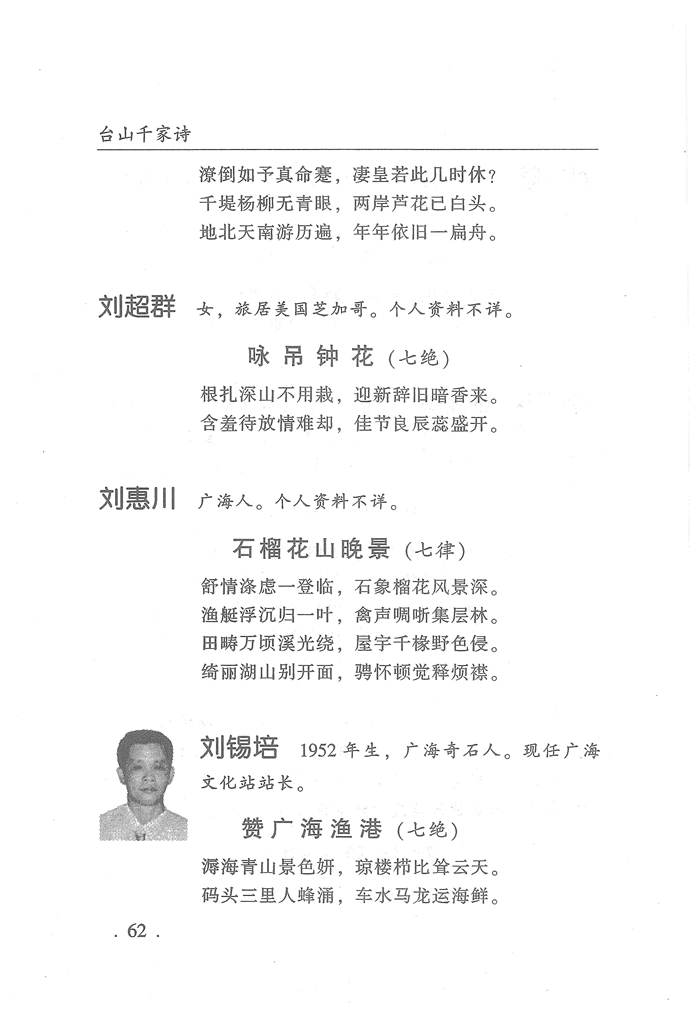 台山千家诗
潦倒如予真命蹇，凄皇若此几时休？
千堤杨柳无青眼，两岸芦花已白头。
地北天南游历遍，年年依旧一扁舟。
刘超群 女，旅居美国芝加哥。个人资料不详。
咏吊钟花（七绝）
根扎深山不用栽，迎新辞旧暗香来。
含羞待放情难却，佳节良辰蕊盛开。
刘惠川 广海人。个人资料不详。
石榴花山晚景（七律）
舒情涤虑一登临，石象榴花风景深。
渔艇浮沉归一叶，禽声啁哳集层林。
田畴万顷溪光绕，屋宇千椽野色侵。
绮丽湖山别开面，骋怀顿觉释烦襟。
刘锡培 1952 年生，广海奇石人。现任广海
文化站站长。
赞广海渔港（七绝）
溽海青山景色妍，琼楼栉比耸云天。
码头三里人蜂涌，车水马龙运海鲜。
. 62 .